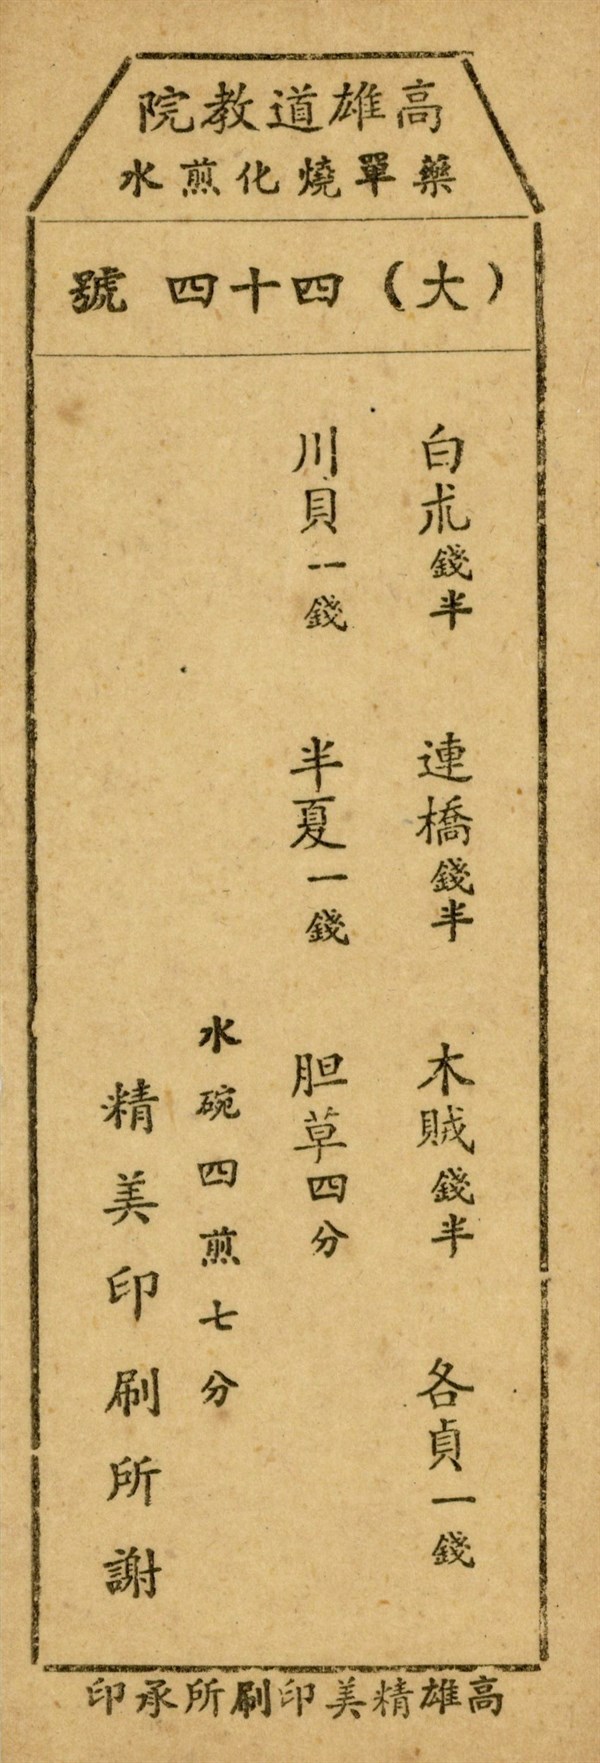 高雄道教院
藥單燒化煎水
(大)四十四號
白朮錢半 連橋錢半 木賊錢半 各貞一錢
川貝一錢 半夏一錢 胆草四分
水碗四煎七分
精美印刷所謝
高雄精美印刷所承印